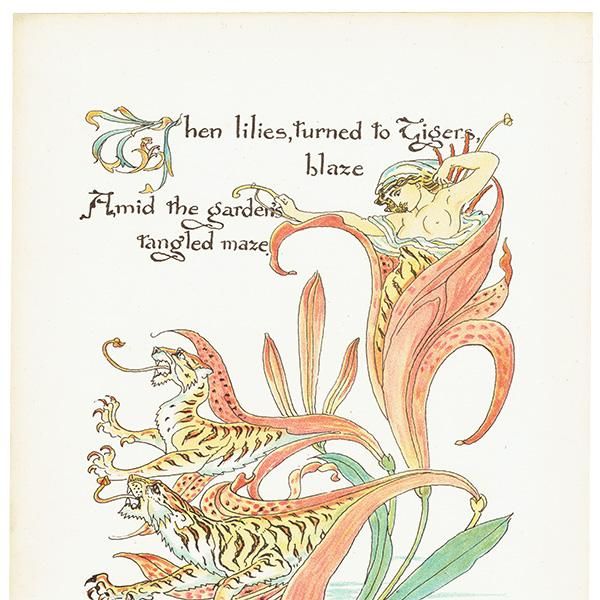 Then lilies, turned to Tigers,
blaze
Amid the garden's
tangled maze.